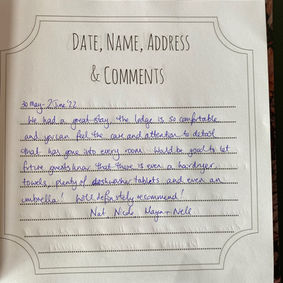 DATE, NAME, ADDRESS
& COMMENTS
30 May - 2 June '22
We had a great stay, the lodge is so comfortable
and you can feel the care and attention to detail
that has gone into every room. Would be good to let
future guests know that there is even a hairdryer,
towels, plenty of dishwasher tablets and even an
umbrella! Will definitely recommend!
Nat